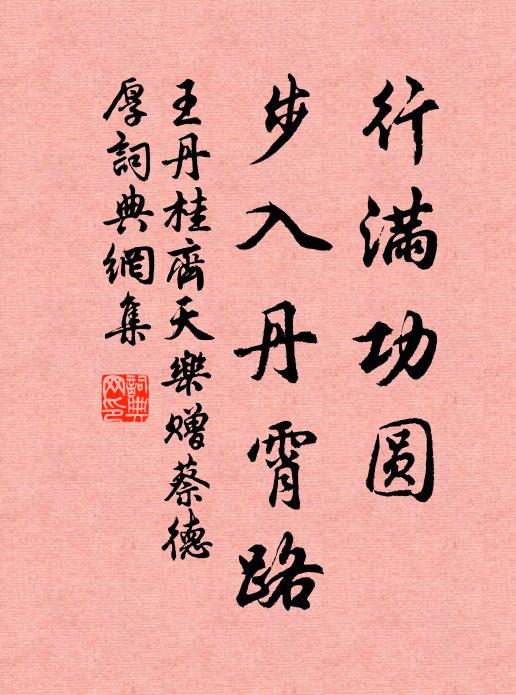 行满功圆
步入丹霄路
王丹桂齊天樂赠蔡德
厚詞典網集
詞典
网印